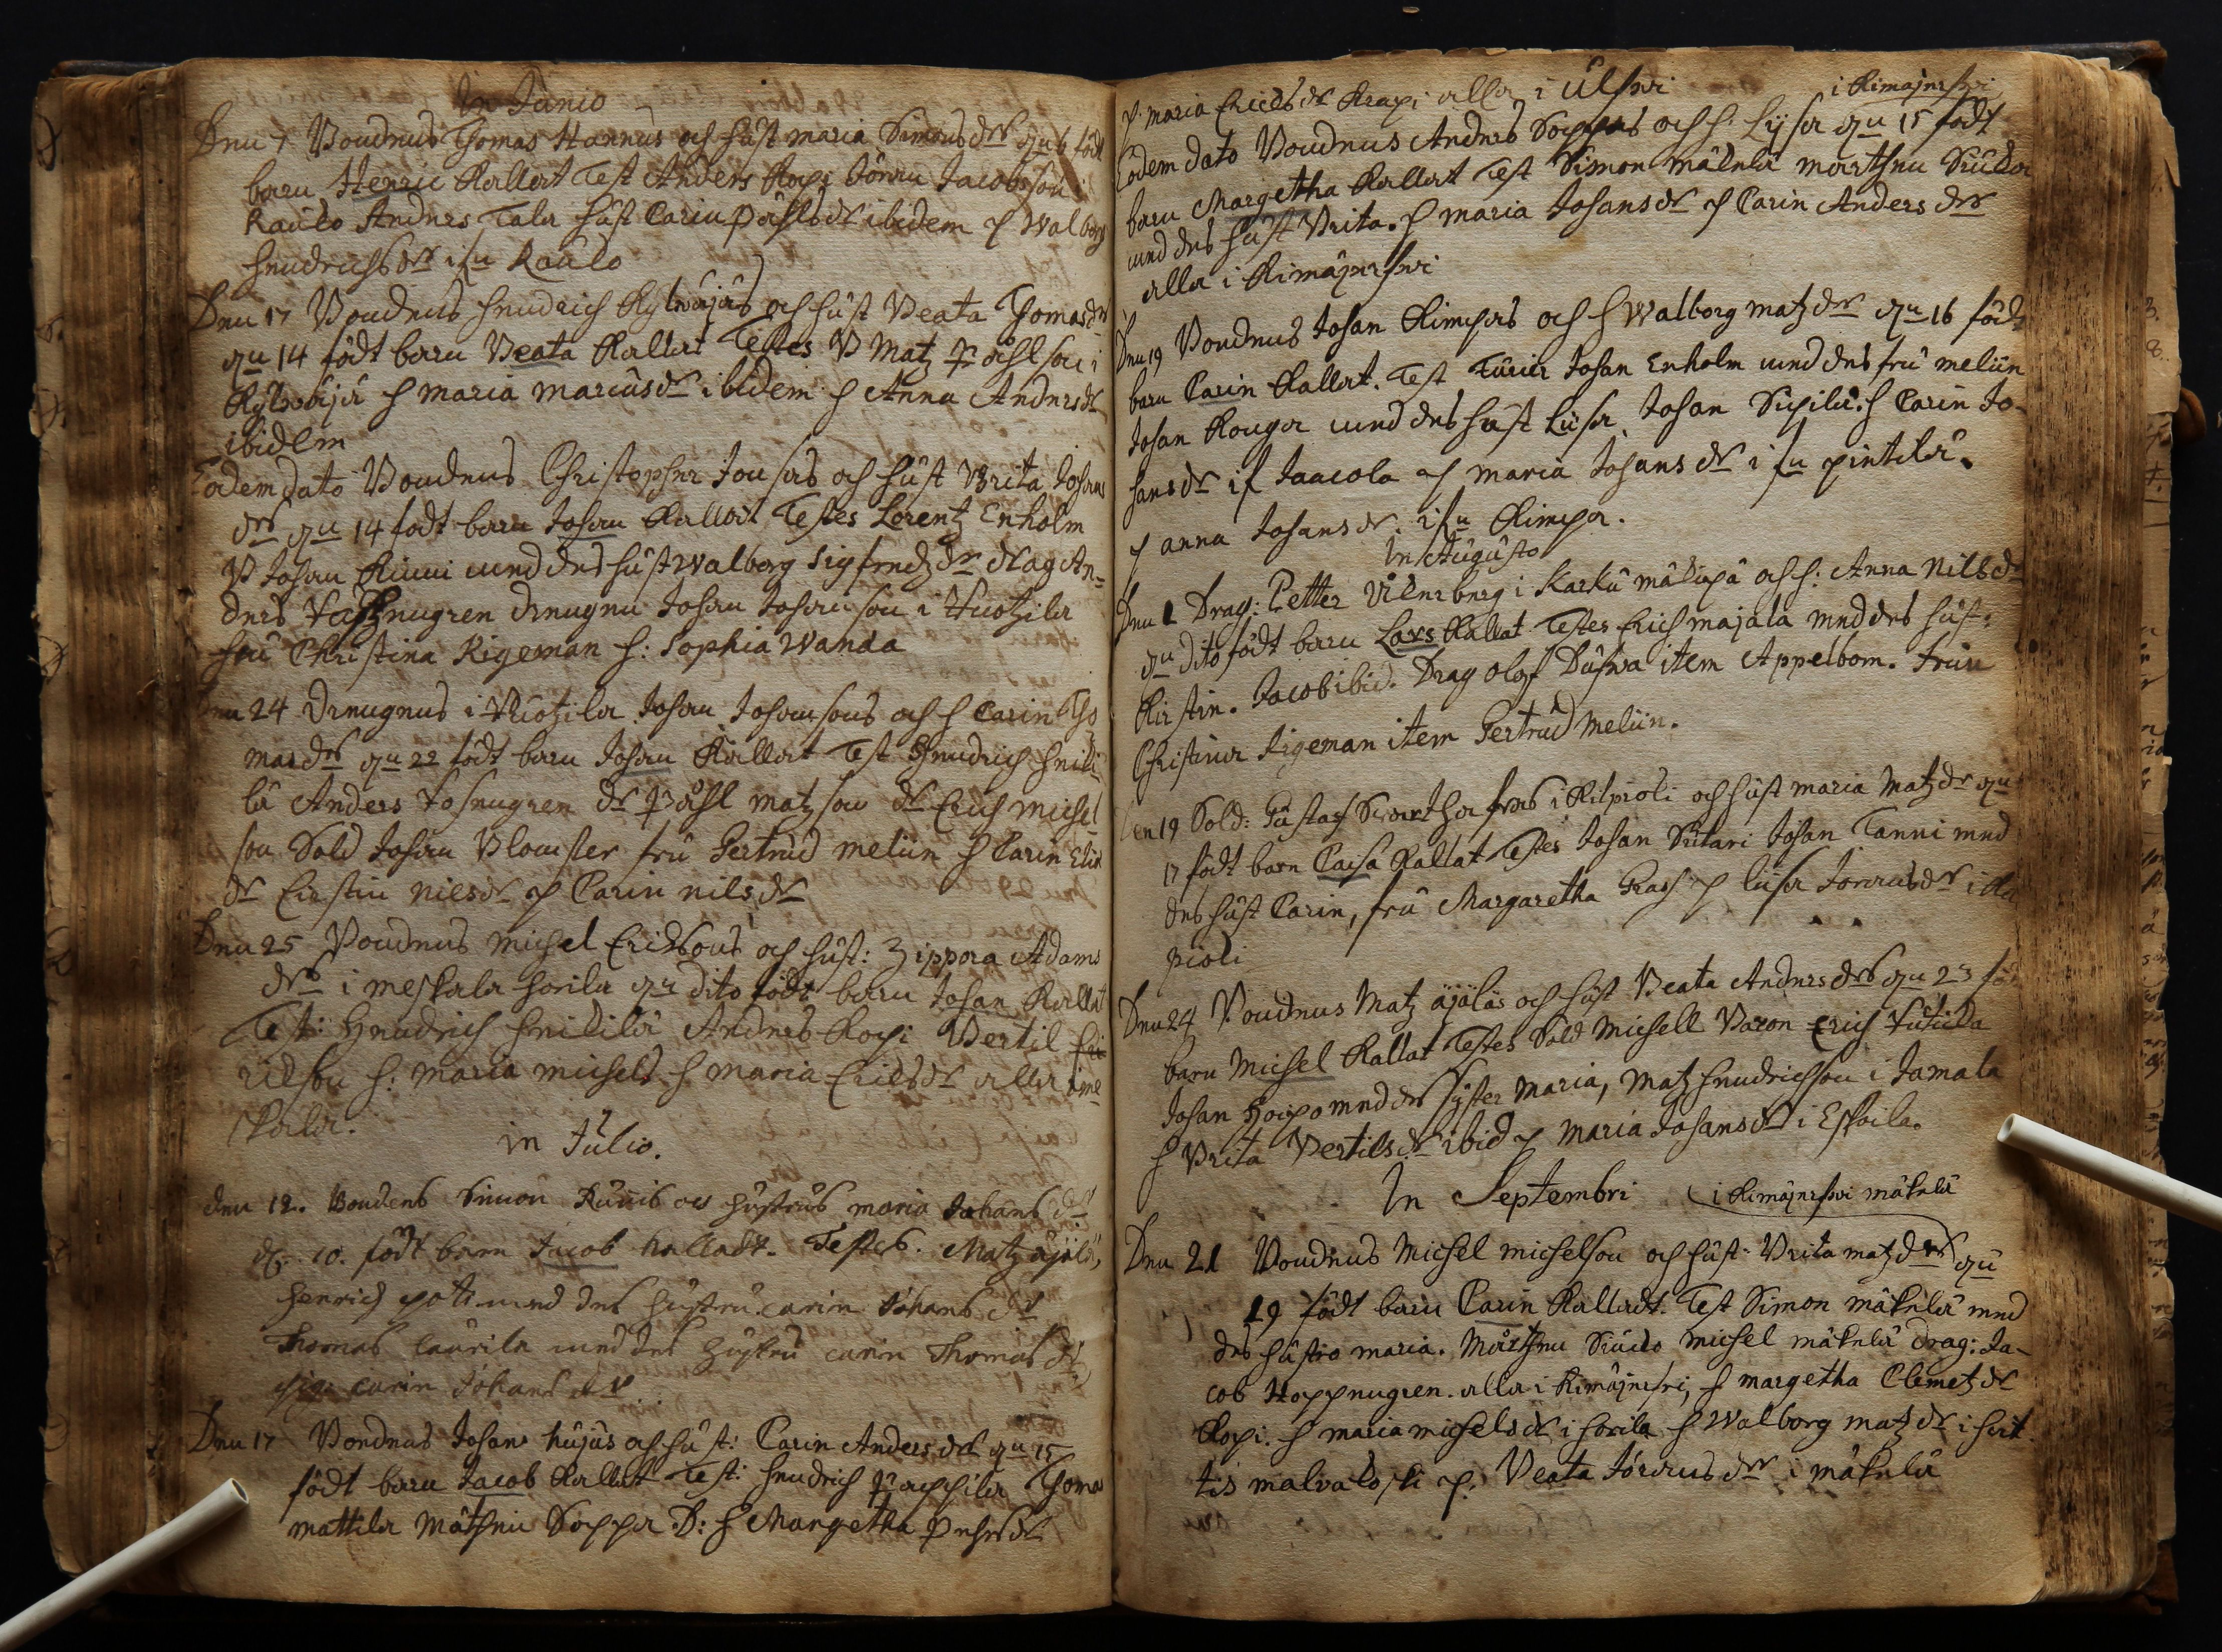 In Junio
Den 7 Bondens Thomas Hannus och hust maria Simons dr den 6 födt
barn Henric Kallat Test Anders Kopi Jöran Jacobsson
Rauko Anders Tala hust Carin påhlsdr ibidem p Walborg
hendrichsdr ifrn Rauko
Den 17 Bondens hendrich Kylmäjäs och hust Beata Thomasdr
den 14 födt barn Beata Kallat Testes B Matz påhlson i
Kylmäjä h maria marcusdr ibidem h Anna Andersdr
ibidem
Eodem dato Bondens Christopher och hust Brita Johans
drs den 14 födt barn Johan Kallat Testes Lorentz Enholm
B Johan med des hust Walborg Sigfredz dr An=
ders drengen Johan Johanson i Huotzila
fru Christina Rigeman h: Sophia Wanda
Den 24 Drengens i Huotzila Johan Johansons och h Carin Tho
masdrs den 22 födt barn Johan Kallat Test Hendrich heiki
lä Anders dr påhl matzson dr Erich michel
son Sold Johan Blomster fru Gertrud meliin h Carin
dr Cirstin nilsdr p Carin nilsdr
Den 25 Bondens michel Erichsons och hust: Zippora Adams
drs i meskala horila den dito födt barn Johan Kallat
Test: Hendrich heikilä Anders Kopi Bertil Eri
richson h: maria michels h maria Erichsdr alla i me
skala.
in Julio.
den 12. Bondens Simon och hustrus maria Johans dr
d. 10. födt barn Jacob kalladt. Testes. Matz äjälä,
Henrich poti med des hustru carin Johans dr
Thomas laurila med des hustru carin Thomas dr
pig. carin Johans dr
Den 17 Bondens Johans hujus och hust: Carin Anders drs den 15
födt barn Jacob Kallat Test: hendrich pappila Thomas
mattila Soppa D: h Margetha pehrsdr
p. maria Erichsdr Krapi alla i Ulfwi
i Kimäjerfwi
Eodem dato Bondens Anders Soppas och h: Lisa den 15 födt
barn Margetha Kallat Test Simon mäkelä morthen
med des hust Brita. p maria Johansdr p Carin Andersdr
alla i Kimäjerfwi
Den 19 Bondens Johan Kimpas och h Walborg matzdr den 16 födt
barn Carin Kallat. Test Furir Johan Enholm med des fru meliin
Johan Konga med des hust Liisa, Johan Sipilä. h Carin Jo-
hansdr if Jaacola p maria Johansdr ifrn pintilä.
p anna Johansdr. ifrn Kimpa.
In Augusto
Den 1 Drag: Petter i Karku mäkipä och h: Anna Nilsdr
den dito födt barn Lars Kallat Testes Erich majala med des hust:
Kirstin. Jacob ibid. Drag olof item Appelbom. fru
Christina Rigeman item Gertrud Meliin.
Den 19 Sold: Gustaf i Kilpioli och hust maria Matzdr den
17 födt barn Caisa Kallat Testes Johan Sutari Johan Tanni med
des hust Carin, fru Margaretha Grass p liisa Joransdr i Kil
pioli
Den 24 Bondens Matz äjäläs och hust Beata Andersdrs den 23 fö
barn Michel Kallat Testes Sold Michell Bason Erich
Johan Hoipo med des syster Maria, Matz hendrichson i Jamala
h Brita Bertilsdr ibid p Maria Johansdr i Eskoila.
In Septembri
i Kimäjerfwi mäkelä
Den 21 Bondens Michel michelson och hust: Brita matzdrs den
19 födt barn Carin Kalladt. Test Simon mäkelä med
des hustro maria. Michel mäkelä drag: Ja-
cob Hoppengren. alla i Kimäjerfwi, h margetha Clemetzdr
Kopi. h maria michelsdr i horila h Walborg matzdr i hert
tis malvaloski p. Beata Joransdr i mäkelä